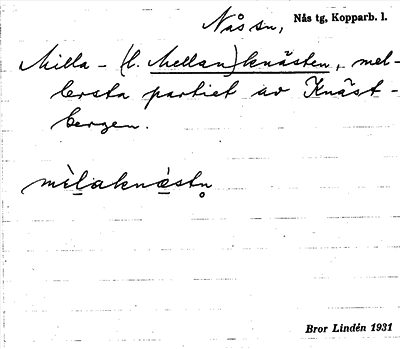 Nås sn, Nås tg, Kopparb. l.
Milla - (l. Mellan)knästen, mel-
lersta partiet av Knäst-
bergen.
mìlaknæ̀stn̥
Bror Lindén 1931